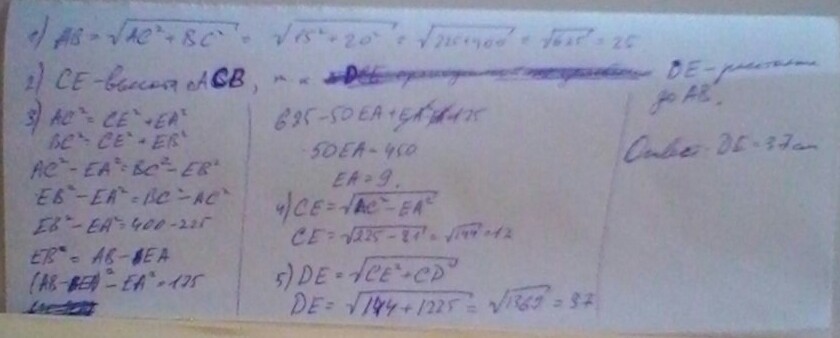 1) AB = √AC² + BC² = √15² + 20² = √225+400 = √625 = 25
2) CE - высота ACB, т к DE - расстояние
до AB.
3) AC² = CE² + EA²
BC² = CE² + EB²
AC² - EA² = BC² - EB²
EB² - EA² = BC² - AC²
EB² - EA² = 400 - 225
EB² = AB - EA
(AB - EA)² - EA² = 175
625 - 50EA + EA² 175
50EA = 450
EA = 9.
4) CE = √AC² - EA²
CE = √225 - 81 = √144 = 12
5) DE = √CE² + CD²
DE = √144 + 1225 = √1369 = 37
Ответ: DE = 37 см